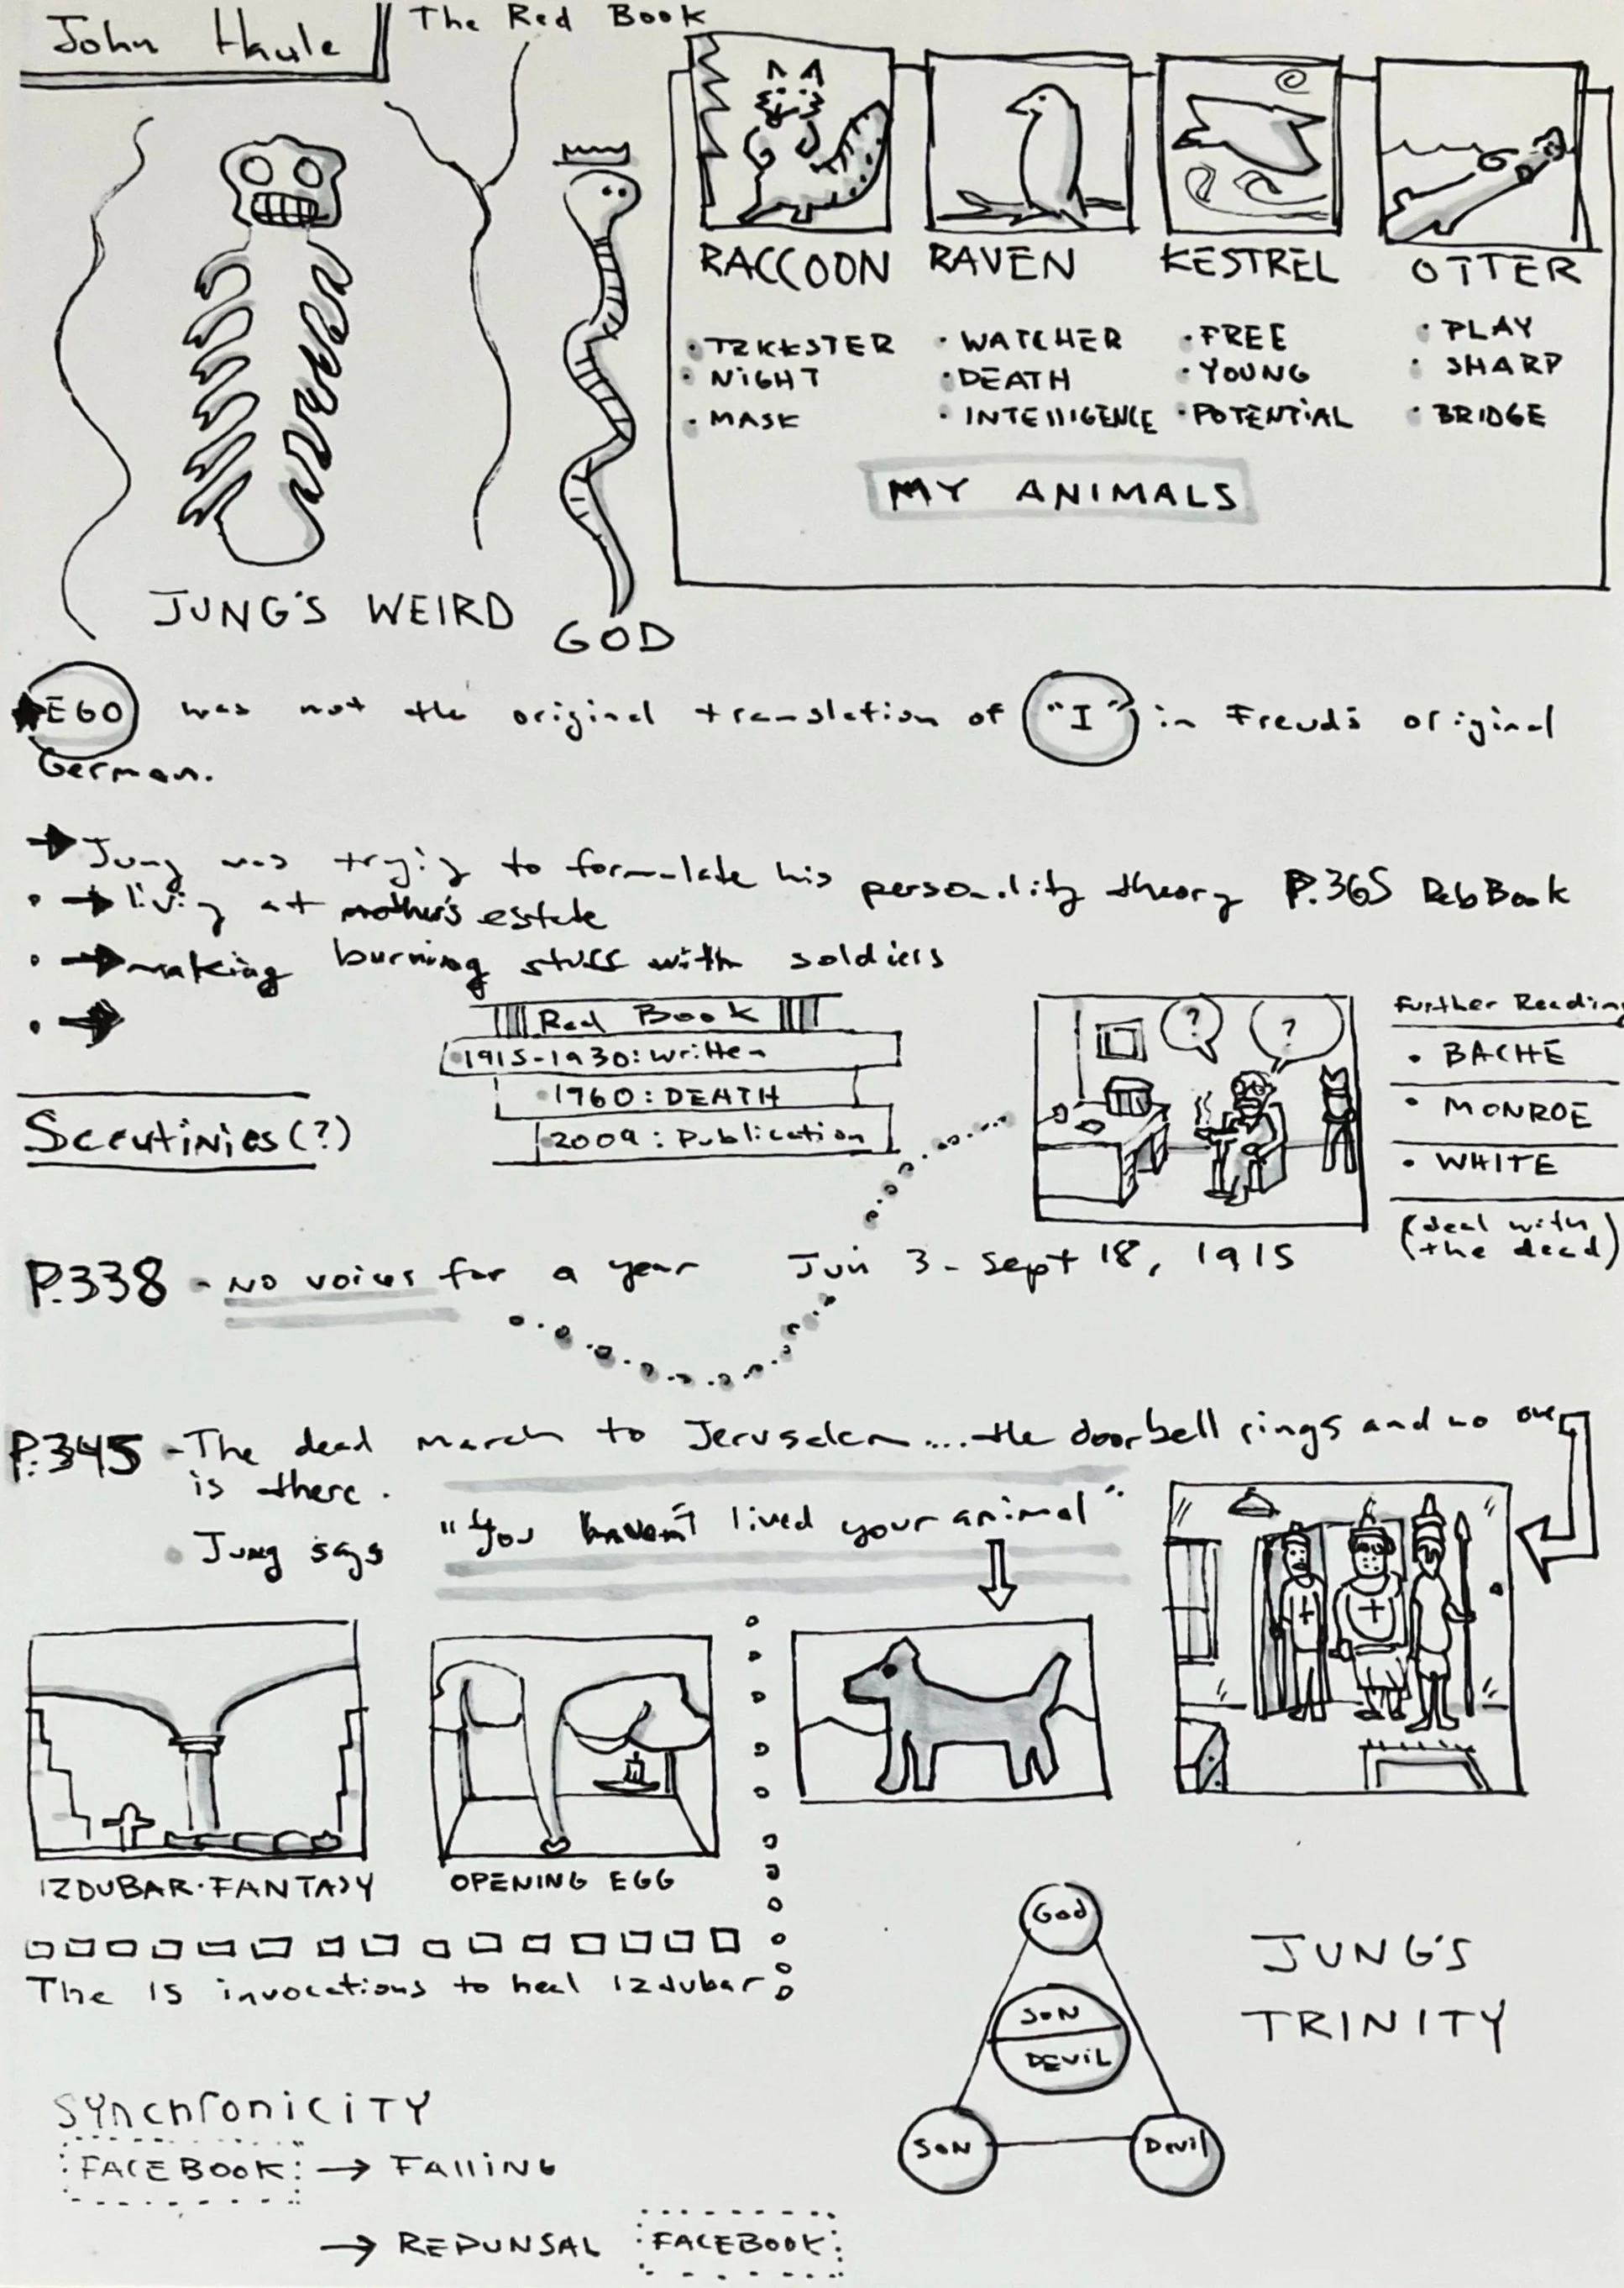 John Haule
The Red Book
RACCOON
RAVEN
KESTREL
OTTER
• TRKKSTER
• NIGHT
• MASK
• WATCHER
• DEATH
• INTELLIGENCE
• FREE
• YOUNG
• POTENTIAL
• PLAY
• SHARP
• BRIDGE
MY ANIMALS
JUNG'S WEIRD
GOD
EGO was not the original translation of "I" in Freud's original
German.
→ Jung was trying to formulate his personality theory P.365 Red Book
• → living at mother's estate
• → making burning stuff with soldiers
• →
Red Book
• 1915-1930: written
• 1960: DEATH
• 2009: Publication
? ?
Further Reading
• BACHE
• MONROE
• WHITE
(deal with
the dead)
Scrutinies(?)
P.338 - No voices for a year Jun 3 - Sept 18, 1915
P.345 - The dead march to Jerusalem.... the doorbell rings and no one
is there.
• Jung says "You haven't lived your animal"
IZDUBAR·FANTASY
OPENING EGG
The 15 invocations to heal Izdubar
God
SON
DEVIL
SON
Devil
JUNG'S
TRINITY
SYNCHRONICITY
FACEBOOK → FALLING
→ REPUNSAL FACEBOOK